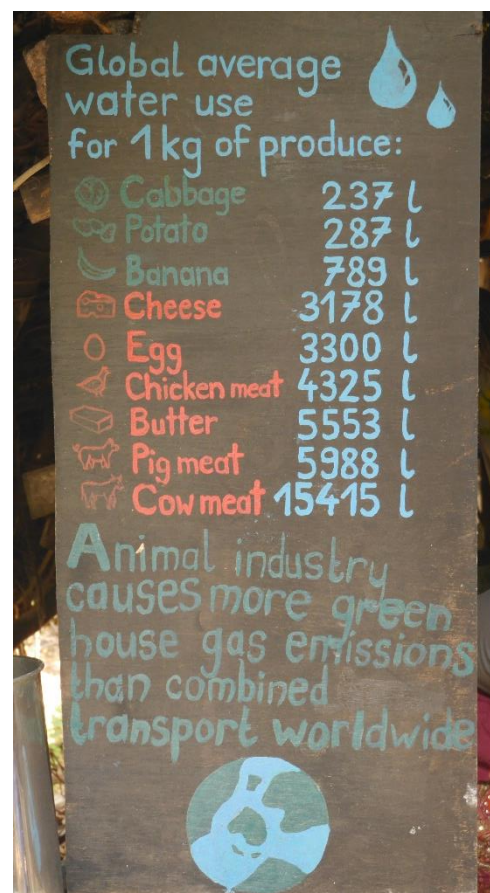 Global average
water use
for 1kg of produce:
Cabbage 237 l
Potato 287 l
Banana 789 l
Cheese 3178 l
Egg 3300 l
Chicken meat 4325 l
Butter 5553 l
Pig meat 5988 l
Cow meat 15415 l
Animal industry
causes more green
house gas emissions
than combined
transport worldwide